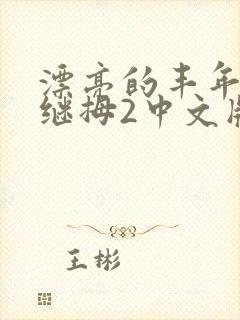 漂亮的丰年
继拇2中文版
王彬